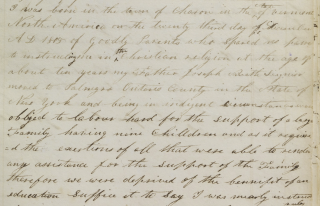 I was born in the town of Charon in the
North America on the twenty third day of
AD 1805 of goodly Parents who spared no pains
to instructing me in the christian religion at the age of
about ten years my Father Joseph Smith Seignior
moved to Palmyra Ontario County in the State of
New York and being in indigent circumstances
obliged to labour hard for the support of a large
Family having nine Children and as it required
the exertions of all that were able to render
any assistance for the support of the Family
therefore we were deprived of the benefit of an
education Suffice it to say I was mearly instructed